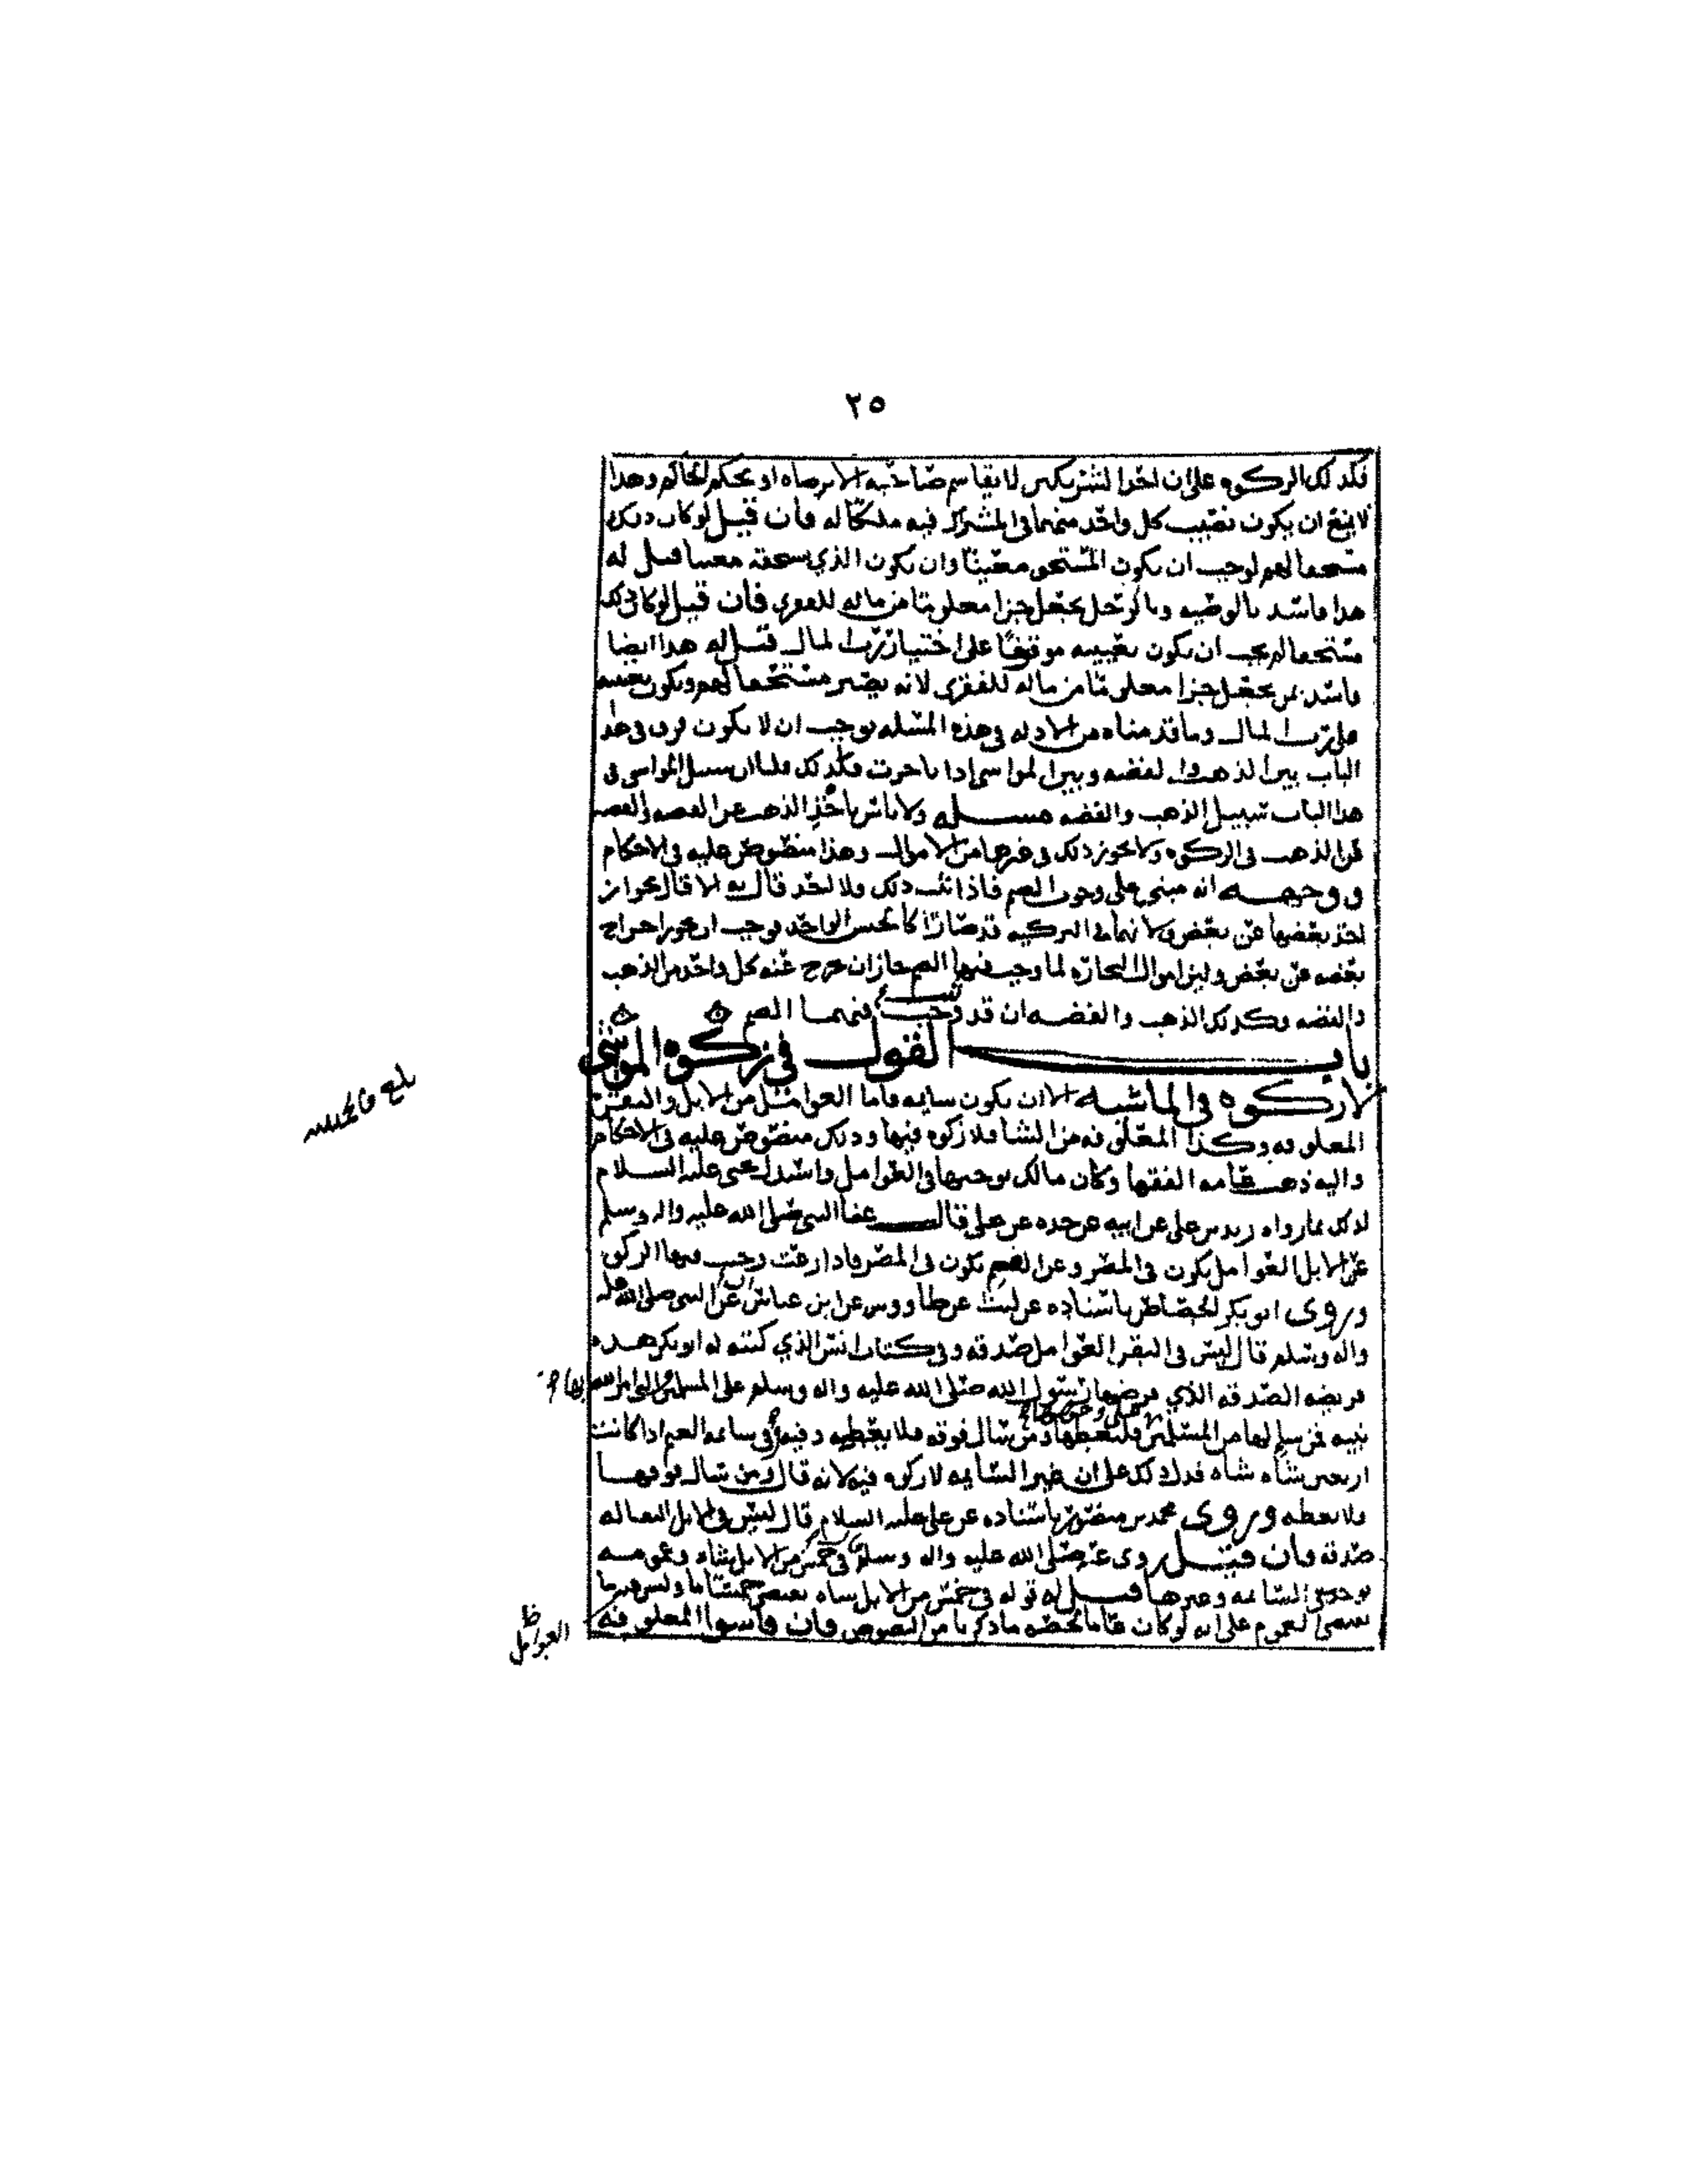 ٢٥
فكذلك الركوه على ان احد الشريكين لا يقاسم صاحبه الا برضاه او بحكم الحاكم وهذا
لا يمنع ان يكون نصيب كل واحد منهما في المشترك فيه ملكا له فان قيل لو كان ذلك
مستحقا لهم لوجب ان يكون المستحق معينا وان يكون الذي يستحقه معينا قيل له
هذا فاسد بالوصيه وبالرجل يجعل جزا معلوما من ماله للفقرى فان قيل لو كان ذلك
مستحقا لم يجب ان يكون تعيينه موقوفا على اختيار رب المال قيل له هذا ايضا
فاسد بمن يجعل جزا معلوما من ماله للفقرى لانه يصير مستحقا لهم ويكون تعيينه
على رب المال وما قدمناه من الادله في هذه المسله يوجب ان لا يكون فرق في هذا
الباب بين الذهب والفضه وبين المواسي اذا تاخرت فكذلك قلنا ان سبيل المواسي في
هذا الباب سبيل الذهب والفضه مسله ولا باس باخذ الذهب عن الفضه والفضه
عن الذهب في الزكوه ولا يجوز ذلك في غيرها من الاموال وهذا منصوص عليه في الاحكام
ووجهه انه مبني على وجوب الضم فاذا ثبت ذلك فلا احد قال به الا قال بجواز
اخذ بعضها عن بعض ولانهما في التزكيه قد صارا كالجنس الواحد فوجب ان يجوز اخراج
بعضه عن بعض ولين اموال التجاره لما وجب فيها الضم جاز ان يخرج عنه كل واحد من الذهب
والفضه وكذلك الذهب والفضه ان قد وجب فيهما الضم
باب القول في زكوه المواشي
لا زكوه في الماشيه الا ان يكون سايمه فاما العوامل من الابل والبقر
المعلوفه وكذا المعلوفه من الشا فلا زكوه فيها وذلك منصوص عليه في الاحكام
واليه ذهب عامه الفقها وكان مالك يوجبها في العوامل واستدل يحيى عليه السلام
لذلك بما رواه زيد بن على عن ابيه عن جده عن على قال عفا النبي صلى الله عليه واله وسلم
عن الابل العوامل يكون في المصر وعن الغنم يكون في المصر فاذا رعت وجب فيها الزكوه
وروى ابو بكر الجصاص باسناده عن ليث عن طاووس عن ابن عباس عن النبي صلى الله عليه
واله وسلم قال ليس في البقر العوامل صدقه وفي كتاب انس الذي كتبه له ابو بكر هذه
فريضه الصدقه الذي فرضها رسول الله صلى الله عليه واله وسلم على المسلمين التي امر الله بها
نبيه فمن سيلها من المسلمين فليعطها ومن سال فوقه فلا يعطيه وفيه وفي سايمه الغنم اذا كانت
اربعين شاه شاه فدل ذلك على ان غير السايمه لا زكوه فيه لانه قال ومن سال فوقها
فلا يعطه وروى محمد بن منصور باسناده عن على عليه السلام قال ليس في الابل العماله
صدقه فان قيل روى عنه صلى الله عليه واله وسلم في خمس من الابل شاه وعمومه
يوجب في السايمه وغيرها قيل له قوله في خمس من الابل شاه يقتضي خمسا ما وليس فيه ما
يقتضي العموم على انه لو كان عاما لخصه ما ذكرنا من النصوص فان قاسوا المعلوفه
العوامل